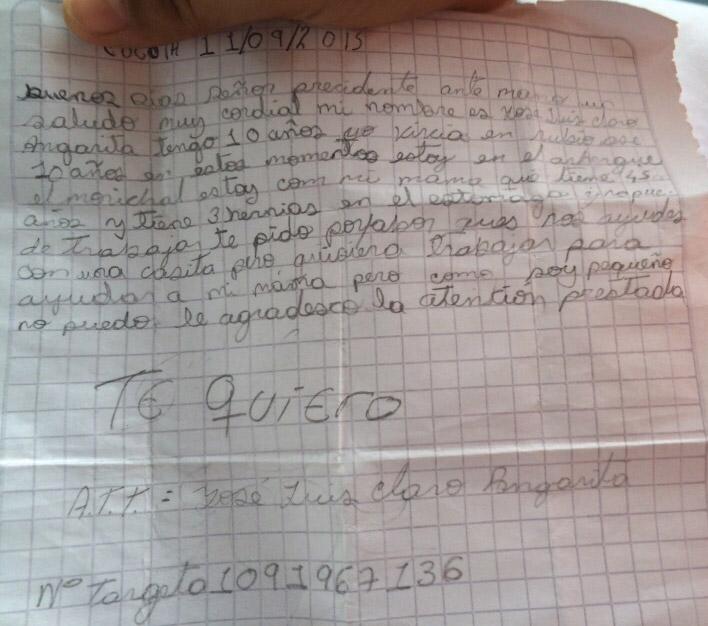 CUCUTA 11/09/2015
buenos dias señor precidente ante me un
saludo muy cordial mi nombre es Yosé Luis claro
Angarita tengo 10 años yo vivia en rubio ase
10 años en estos momentos estoy en el alvergue
el morichal estoy com mi mama que tiene 45
años y tiene 3 hernias en el estomago
de trabajar te pido porfabor nos ayudes
con una casita pero quisiera trabajar para
ayudar a mi mama pero como soy pequeño
no puedo le agradesco la atención prestada
TE QUiERO
A.T.T. = Yosé Luis claro Angarita
Nº Targeta 1091967136